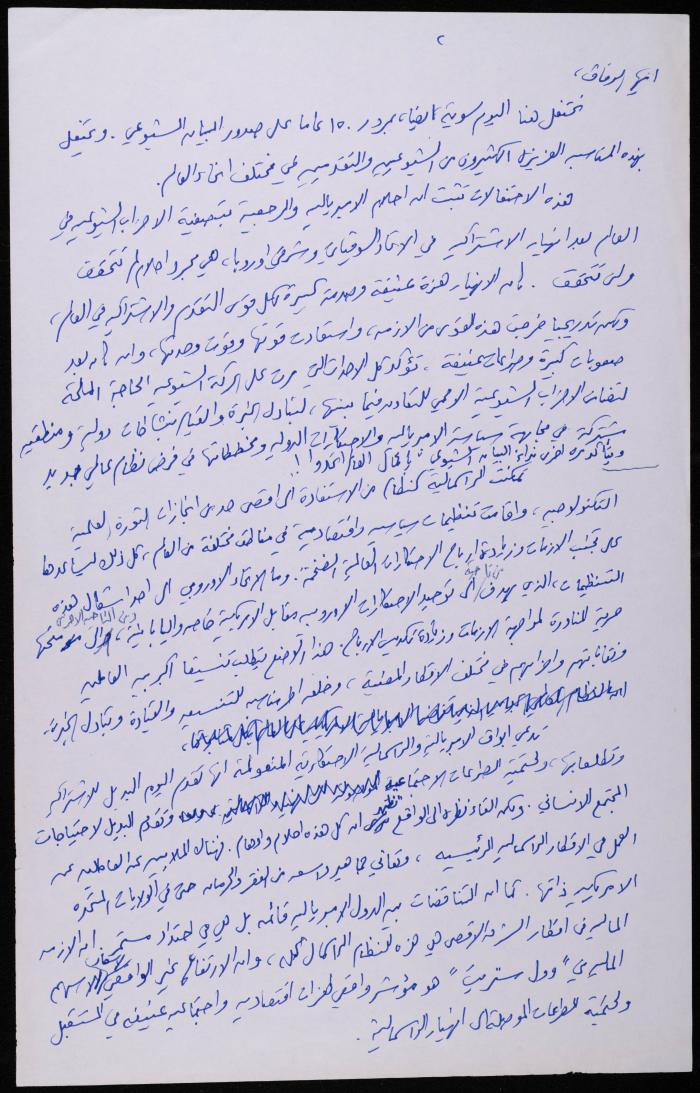 ٢
ايها الرفاق،
نحتفل هنا اليوم سوية ايضا، بمرور ١٥٠ عاما على صدور البيان الشيوعي. ويحتفل
بهذه المناسبة العزيزة الكثيرون من الشيوعيين والتقدميين في مختلف انحاء العالم.
هذه الاحتفالات تثبت ان احلام الامبريالية والرجعية بتصفية الاحزاب الشيوعية في
العالم بعد انهيار الاشتراكية في الاتحاد السوفياتي وشرقي اوروبا، هي مجرد احلام لم تتحقق
ولن تتحقق. كان الانهيار هزة عنيفة وصدمة كبيرة لكل قوى التقدم والاشتراكية في العالم،
ولكن تدريجيا خرجت هذه القوى من الازمة، واستعادت قوتها وقوت وحدتها، وان كان بعد
صعوبات كبيرة وصراعات عنيفة. تؤكد كل الاحداث التي مرت على الحركة الشيوعية الحاجة الملحة
لتضامن الاحزاب الشيوعية الاممي للتعاون فيما بينها، لتبادل الخبرة والقيام بنشاطات دولية ومنطقية
مشتركة في مجابهة سياسة الامبريالية والاحتكارات الدولية ومخططاتها في فرض نظام عالمي جديد
اخرى نداء البيان الشيوعي "يا عمال العالم اتحدوا"!
تمكنت الرأسمالية كنظام من الاستفادة الى اقصى حد من انجازات الثورة العلمية
التكنولوجية، واقامت تنظيمات سياسية واقتصادية في مناطق مختلفة من العالم، كل ذلك ليساعدها
على تجنب الازمات وزيادة ارباح الاحتكارات العالمية الضخمة. وما الاتحاد الاوروبي الا احد اشكال هذه
التنظيمات، الذي يهدف من ناحية الى توحيد الاحتكارات الاوروبية مقابل الامريكية خاصة واليابانية، ومن الناحية الاخرى الى منحها
حرية المناورة لمواجهة الازمات وزيادة تكديس الارباح. هذا الوضع يتطلب تنسيقا اكبر بين العاملين
ونقاباتهم واحزابهم في مختلف الاقطار المعنية، وخلق اطر مناسبة للتنسيق والقيادة وتبادل الخبرة.
تدعي ابواق الامبريالية والرأسمالية الاحتكارية المتعولمة انها تقدم اليوم البديل للاشتراكية
وتطلعاتها، ولحتمية الصراعات الاجتماعية وتقدم البديل لاحتياجات
المجتمع الانساني. ولكن القاء نظرة الى الواقع تظهر ان كل هذه احلام واوهام. فهناك الملايين من العاطلين عن
العمل في الاقطار الرأسمالية الرئيسية، وتعاني جماهير واسعة من الفقر والحرمان حتى في الولايات المتحدة
الامريكية ذاتها. كما ان التناقضات بين الدول الامبريالية قائمة بل هي في احتداد مستمر. ان الازمة
المالية في اقطار الشرق الاقصى هي هزة للنظام الرأسمالي كله، وان الارتفاع غير الواقعي لاسعار الاسهم
المالية في "وول ستريت" هو مؤشر واقعي لهزات اقتصادية واجتماعية عنيفة في المستقبل
ولحتمية الصراعات الموصلة الى انهيار الرأسمالية.